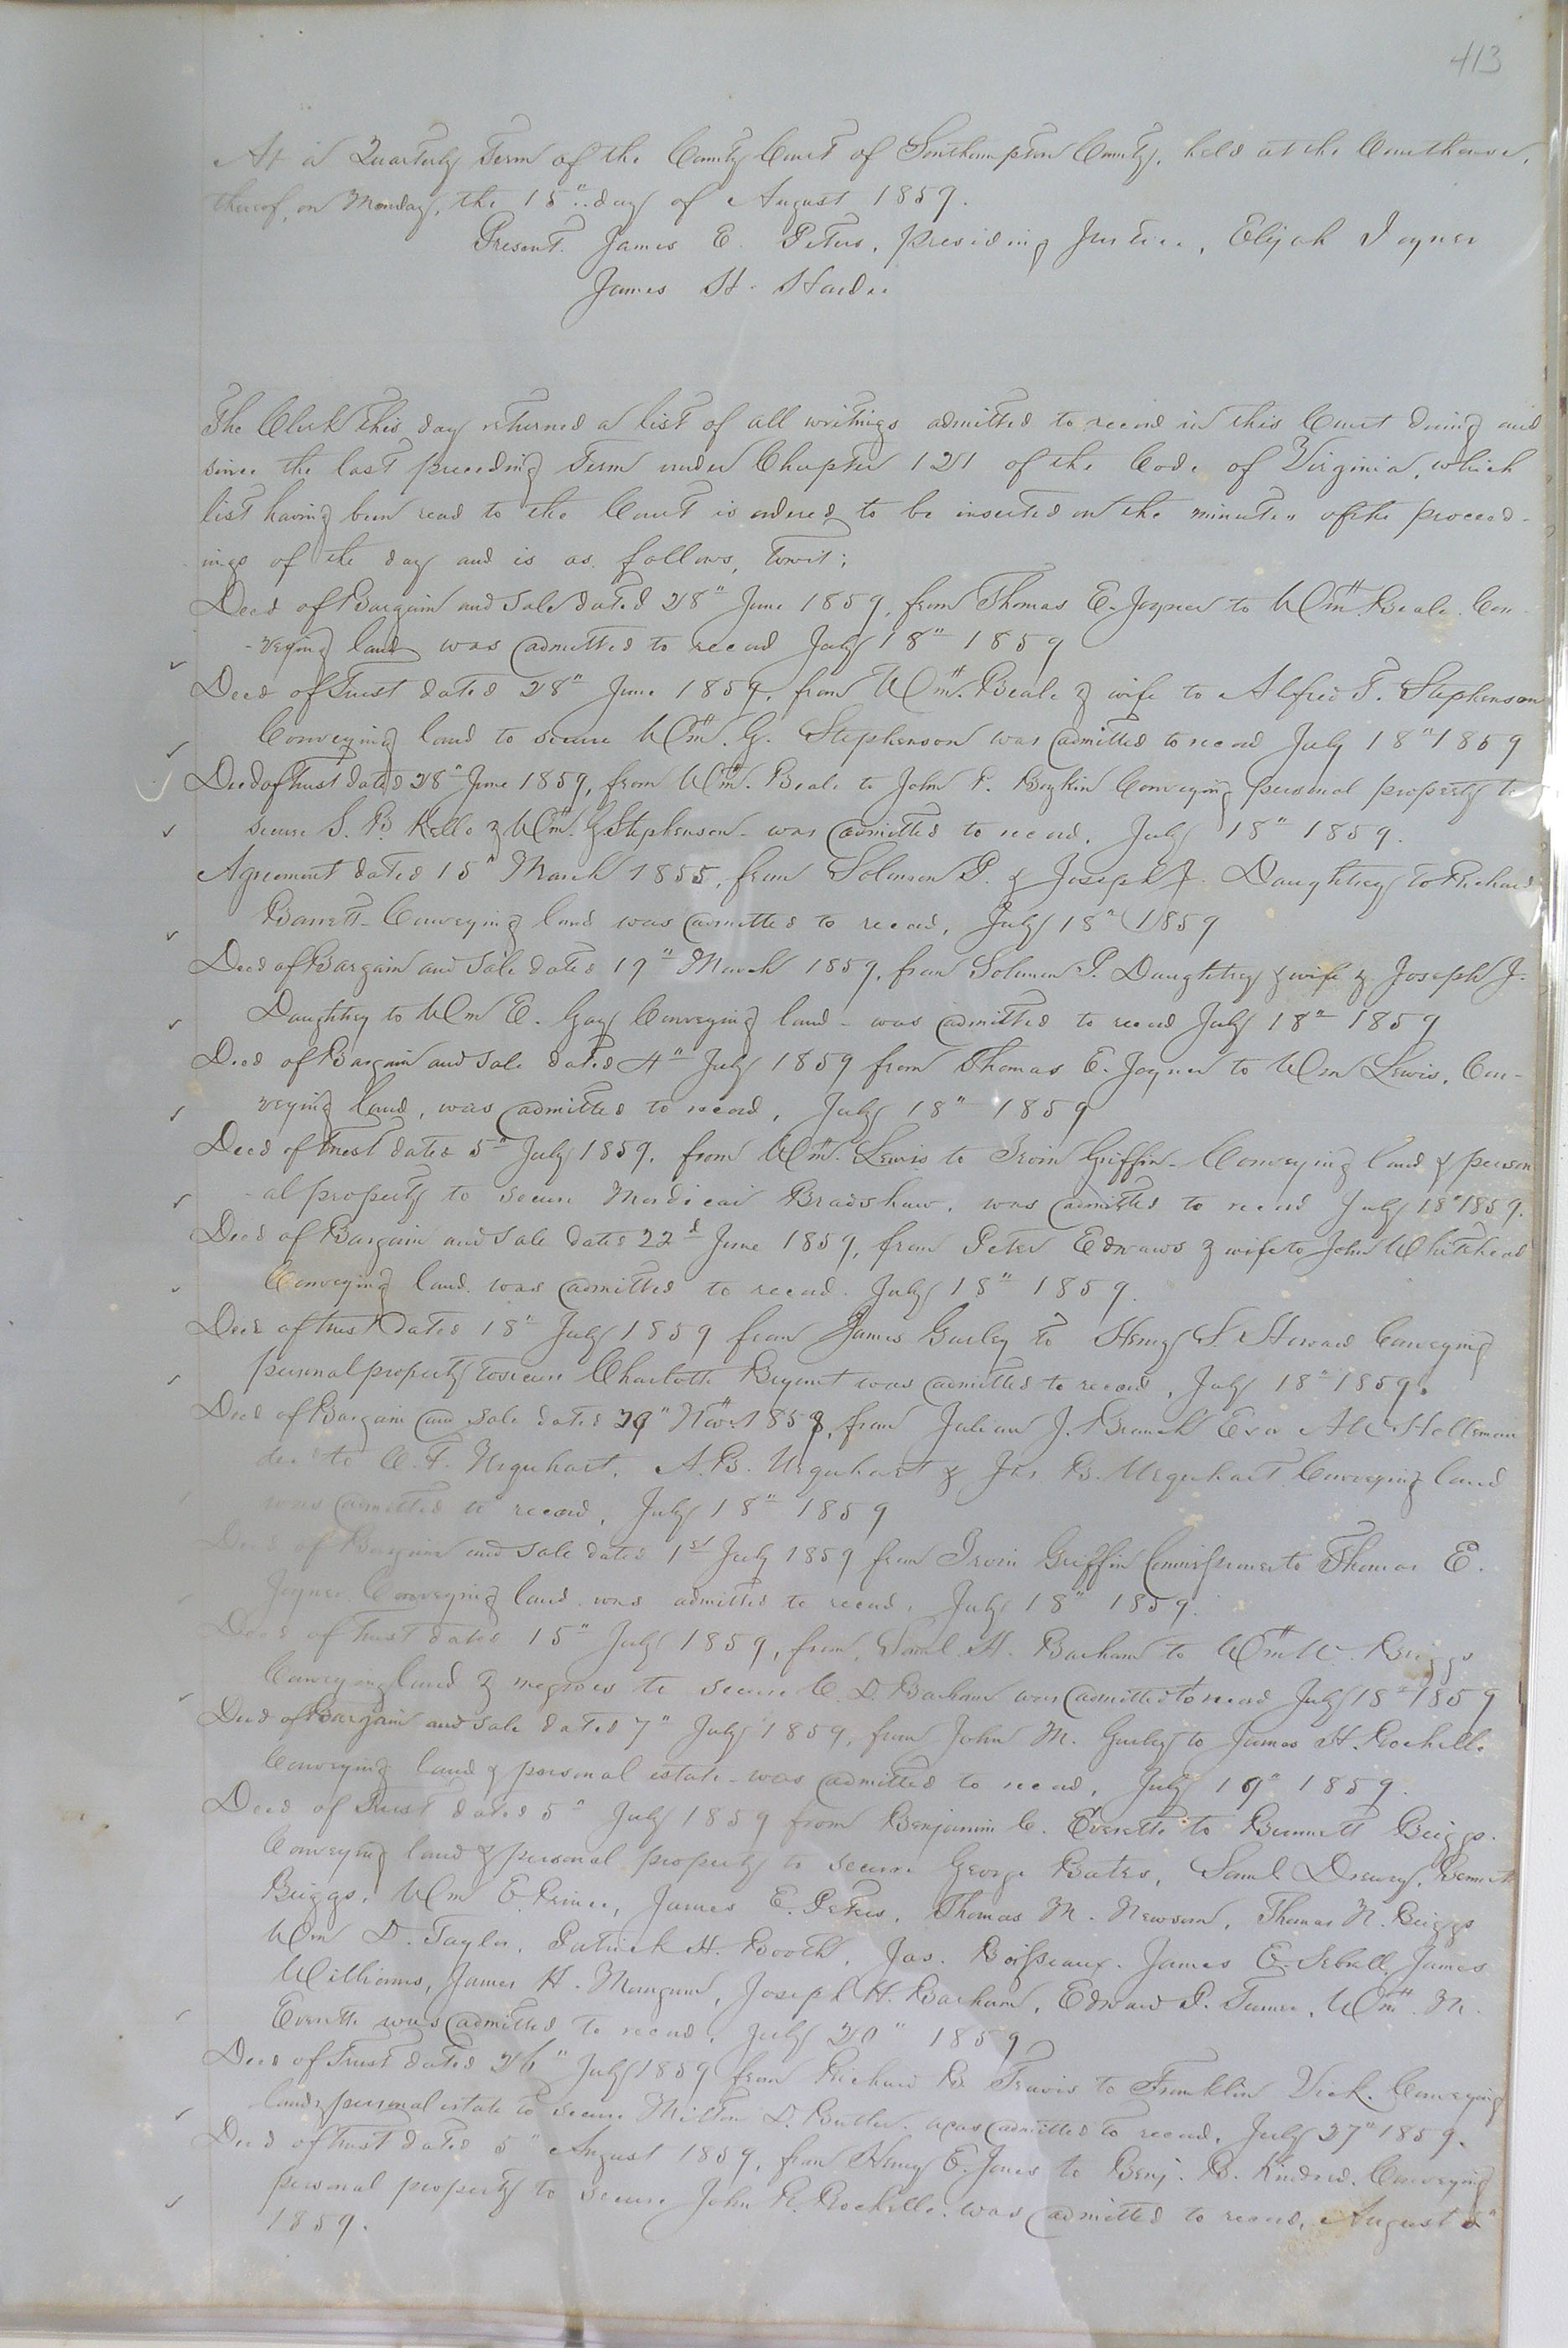 413
At a Quarterly Term of the County Court of Southampton County, held at the Courthouse,
thereof, on Monday, the 15" day of August 1859.
Present. James E. Peters, presiding Justice, Elijah Joyner
James H. Hardee
The Clerk this day returned a list of all writings admitted to record in this Court during and
since the last preceding Term under Chapter 121 of the Code of Virginia, which
list having been read to the Court is ordered to be inserted on the minutes of the proceed-
ings of the day and is as follows, Towit;
Deed of Bargain and Sale dated 28" June 1859, from Thomas E. Joyner to Wm H. Beale. Con-
-veying land was admitted to record July 18" 1859
Deed of Trust dated 28" June 1859, from Wm H. Beale & wife to Alfred T. Stephenson
Conveying land to secure Wm H. G. Stephenson was admitted to record July 18" 1859
Deed of Trust dated 28" June 1859, from Wm H. Beale to John P. Boykin Conveying personal property to
secure S. B. Kello & Wm H. G. Stephenson - was admitted to record, July 18" 1859.
Agreement dated 15" March 1855, from Solomon P. & Joseph J. Daughtrey to Richard
Barrett - Conveying land was admitted to record, July 18" 1859
Deed of Bargain and Sale dated 19" March 1859, from Solomon P. Daughtrey & wife & Joseph J.
Daughtrey to Wm E. Gay Conveying land - was admitted to record July 18" 1859
Deed of Bargain and Sale dated 4" July 1859 from Thomas E. Joyner to Wm Lewis, Con-
veying land, was admitted to record, July 18" 1859
Deed of Trust dated 5" July 1859, from Wm H. Lewis to Irvin Griffin - Conveying land & person
-al property to secure Mordicai Bradshaw, was admitted to record July 18" 1859.
Deed of Bargain and Sale dated 22d June 1859, from Peter Edwards & wife to John Whitehead
Conveying land was admitted to record. July 18" 1859.
Deed of trust dated 18" July 1859 from James Gurley to Henry S. Howard Conveying
personal property to secure Charlotte Bryant was admitted to record, July 18" 1859.
Deed of Bargain and Sale dated 29" Nov. 1858, from Julian J. Branch Exor A W Holleman
dec to C. F. Urquhart, A. B. Urquhart & Jas B. Urquhart Conveying land
was admitted to record, July 18" 1859
Deed of Bargain and Sale dated 1st July 1859 from Irvin Griffin Commissioner to Thomas E.
Joyner Conveying land. was admitted to record, July 18" 1859.
Deed of Trust dated 15" July 1859, from Saml. H. Barham to Wm H W. Briggs
Conveying land & negroes to secure C. D. Barham was admitted to record July 18" 1859
Deed of Bargain and Sale dated 7" July 1859, from John M. Gurley to James H. Rochelle
Conveying land & personal estate - was admitted to record, July 19" 1859.
Deed of Trust dated 5" July 1859 from Benjamin C. Everette to Bennett Briggs.
Conveying land & personal property to secure George Bates, Saml Drewry, Bennett
Briggs, Wm E. Prince, James E. Peters, Thomas M. Newsom, Thomas N. Briggs
Wm D. Taylor, Patrick H. Booth, Jas. Boisseaux. James E. Sebrell, James
Williams, James H. Mangum, Joseph H. Barham, Edward P. Turner, Wm H. M.
Everette was admitted to record, July 20" 1859
Deed of Trust dated 26" July 1859 from Richard B. Travis to Franklin Vick. Conveying
land & personal estate to secure Milton D. Butler. was admitted to record, July 27" 1859.
Deed of Trust dated 5" August 1859, from Henry E. Jones to Benj. B. Kindred. Conveying
personal property to secure John R. Rochelle. was admitted to record, August 5"
1859.